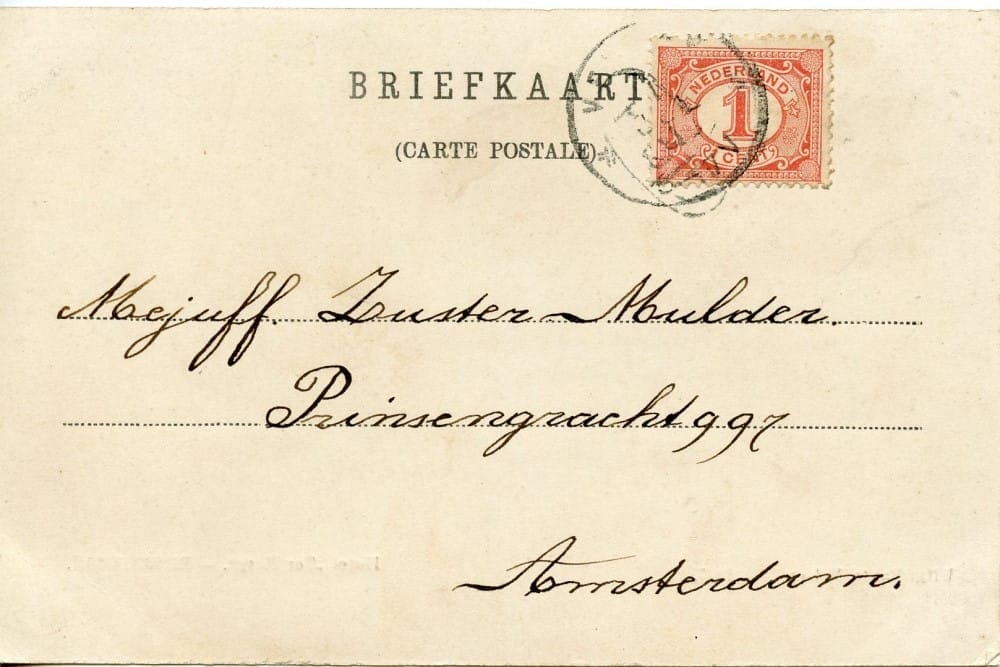 BRIEFKAART
(CARTE POSTALE)
NEDERLAND
1
CENT
Mejuff. Zuster Mulder.
Prinsengracht 997
Amsterdam.